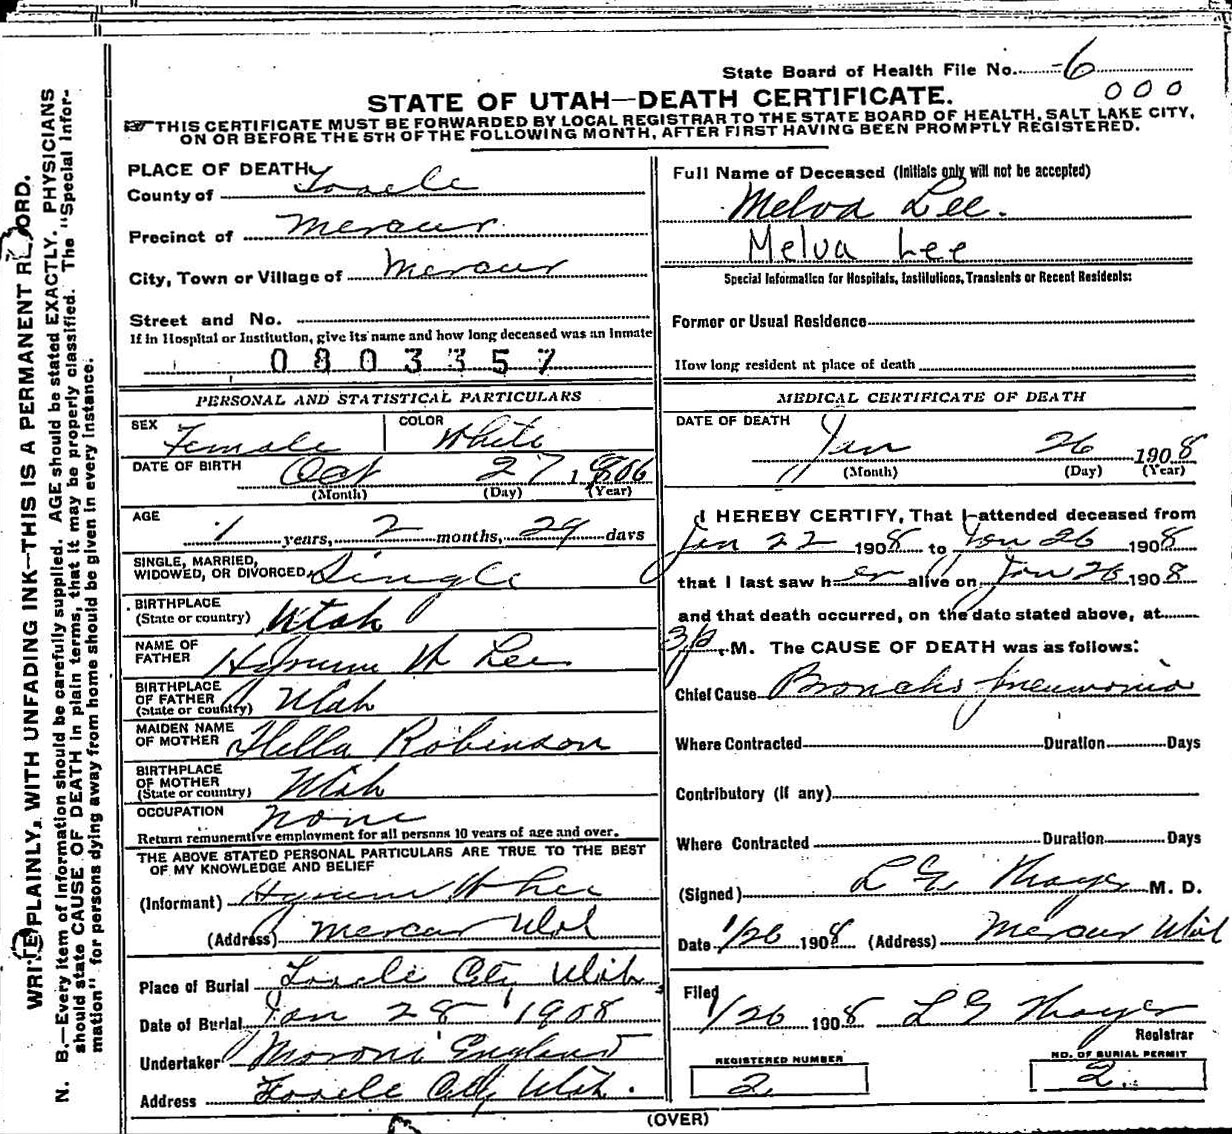 State Board of Health File No. 6
000
STATE OF UTAH—DEATH CERTIFICATE.
THIS CERTIFICATE MUST BE FORWARDED BY LOCAL REGISTRAR TO THE STATE BOARD OF HEALTH, SALT LAKE CITY,
ON OR BEFORE THE 5TH OF THE FOLLOWING MONTH, AFTER FIRST HAVING BEEN PROMPTLY REGISTERED.
WRITE PLAINLY, WITH UNFADING INK—THIS IS A PERMANENT RECORD.
N. B.—Every item of information should be carefully supplied. AGE should be stated EXACTLY. PHYSICIANS
should state CAUSE OF DEATH in plain terms, that it may be properly classified. The "Special Infor-
mation" for persons dying away from home should be given in every instance.
PLACE OF DEATH
County of Tooele
Precinct of Mercur
City, Town or Village of Mercur
Street and No.
If in Hospital or Institution, give its name and how long deceased was an inmate
0803357
PERSONAL AND STATISTICAL PARTICULARS
SEX Female COLOR White
DATE OF BIRTH Oct 27 1906
(Month) (Day) (Year)
AGE 1 years, 2 months, 29 days
SINGLE, MARRIED,
WIDOWED, OR DIVORCED Single
BIRTHPLACE
(State or country) Utah
NAME OF
FATHER Hyrum W Lee
BIRTHPLACE
OF FATHER
(State or country) Utah
MAIDEN NAME
OF MOTHER Hella Robinson
BIRTHPLACE
OF MOTHER
(State or country) Utah
OCCUPATION None
Return remunerative employment for all persons 10 years of age and over.
THE ABOVE STATED PERSONAL PARTICULARS ARE TRUE TO THE BEST
OF MY KNOWLEDGE AND BELIEF
(Informant) Hyrum W Lee
(Address) Mercur Utah
Place of Burial Tooele City Utah
Date of Burial Jan 28 1908
Undertaker Moroni England
Address Tooele City Utah.
Full Name of Deceased (Initials only will not be accepted)
Melva Lee.
Melva Lee
Special Information for Hospitals, Institutions, Transients or Recent Residents:
Former or Usual Residence
How long resident at place of death
MEDICAL CERTIFICATE OF DEATH
DATE OF DEATH
Jan 26 1908
(Month) (Day) (Year)
I HEREBY CERTIFY, That I attended deceased from
Jan 22 1908 to Jan 26 1908
that I last saw her alive on Jan 26 1908
and that death occurred, on the date stated above, at
3 P.M. The CAUSE OF DEATH was as follows:
Chief Cause Broncho pneumonia
Where Contracted Duration Days
Contributory (if any)
Where Contracted Duration Days
(Signed) L G Thayer M. D.
Date 1/26 1908 (Address) Mercur Utah
Filed
1/26 1908 L G Thayer
Registrar
REGISTERED NUMBER
2
NO. OF BURIAL PERMIT
2.
(OVER)